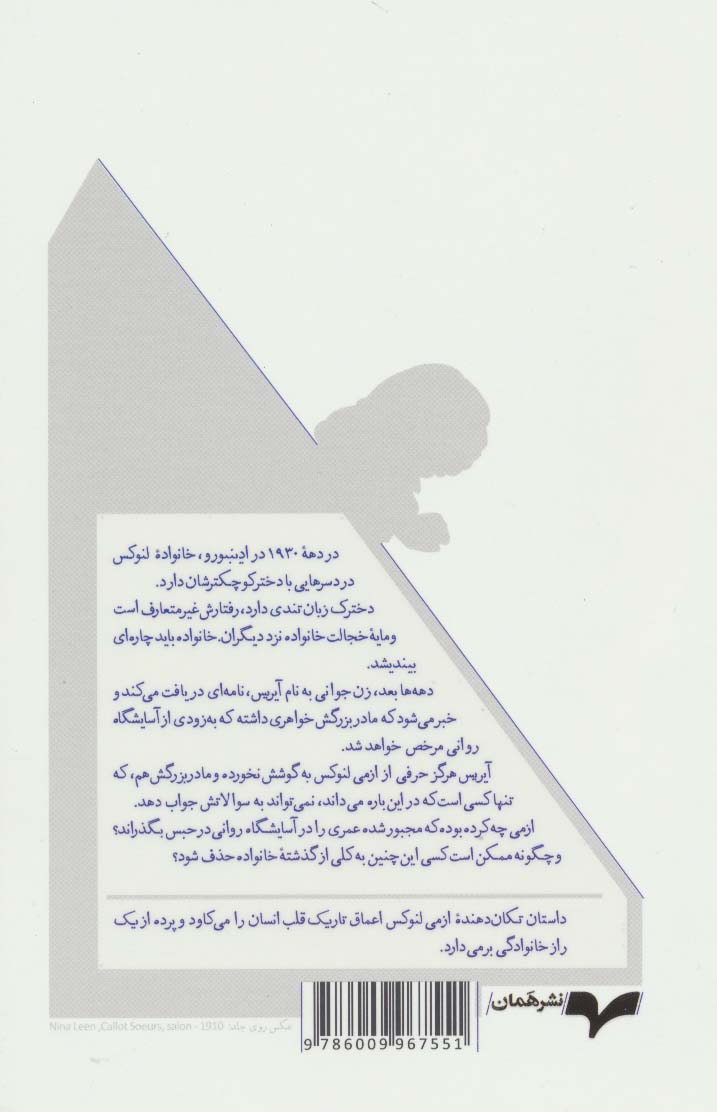 در دههٔ ۱۹۳۰ در ادینبورو، خانوادهٔ لنوکس
دردسرهایی با دختر کوچکترشان دارد.
دخترک زبان تندی دارد، رفتارش غیرمتعارف است
و مایهٔ خجالت خانواده نزد دیگران. خانواده باید چاره‌ای
بیندیشد.
دهه‌ها بعد، زن جوانی به نام آیریس، نامه‌ای دریافت می‌کند و
خبر می‌شود که مادربزرگش خواهری داشته که به‌زودی از آسایشگاه
روانی مرخص خواهد شد.
آیریس هرگز حرفی از ازمی لنوکس به گوشش نخورده و مادربزرگش هم، که
تنها کسی است که در این باره می‌داند، نمی‌تواند به سوالاتش جواب دهد.
ازمی چه کرده بوده که مجبور شده عمری را در آسایشگاه روانی در حبس بگذراند؟
و چگونه ممکن است کسی این چنین به کلی از گذشتهٔ خانواده حذف شود؟
داستان تکان‌دهندهٔ ازمی لنوکس اعماق تاریک قلب انسان را می‌کاود و پرده از یک
راز خانوادگی برمی‌دارد.
نشر هَمان
عکس روی جلد: Nina Leen ,Callot Soeurs, salon - 1910
9 786009 967551